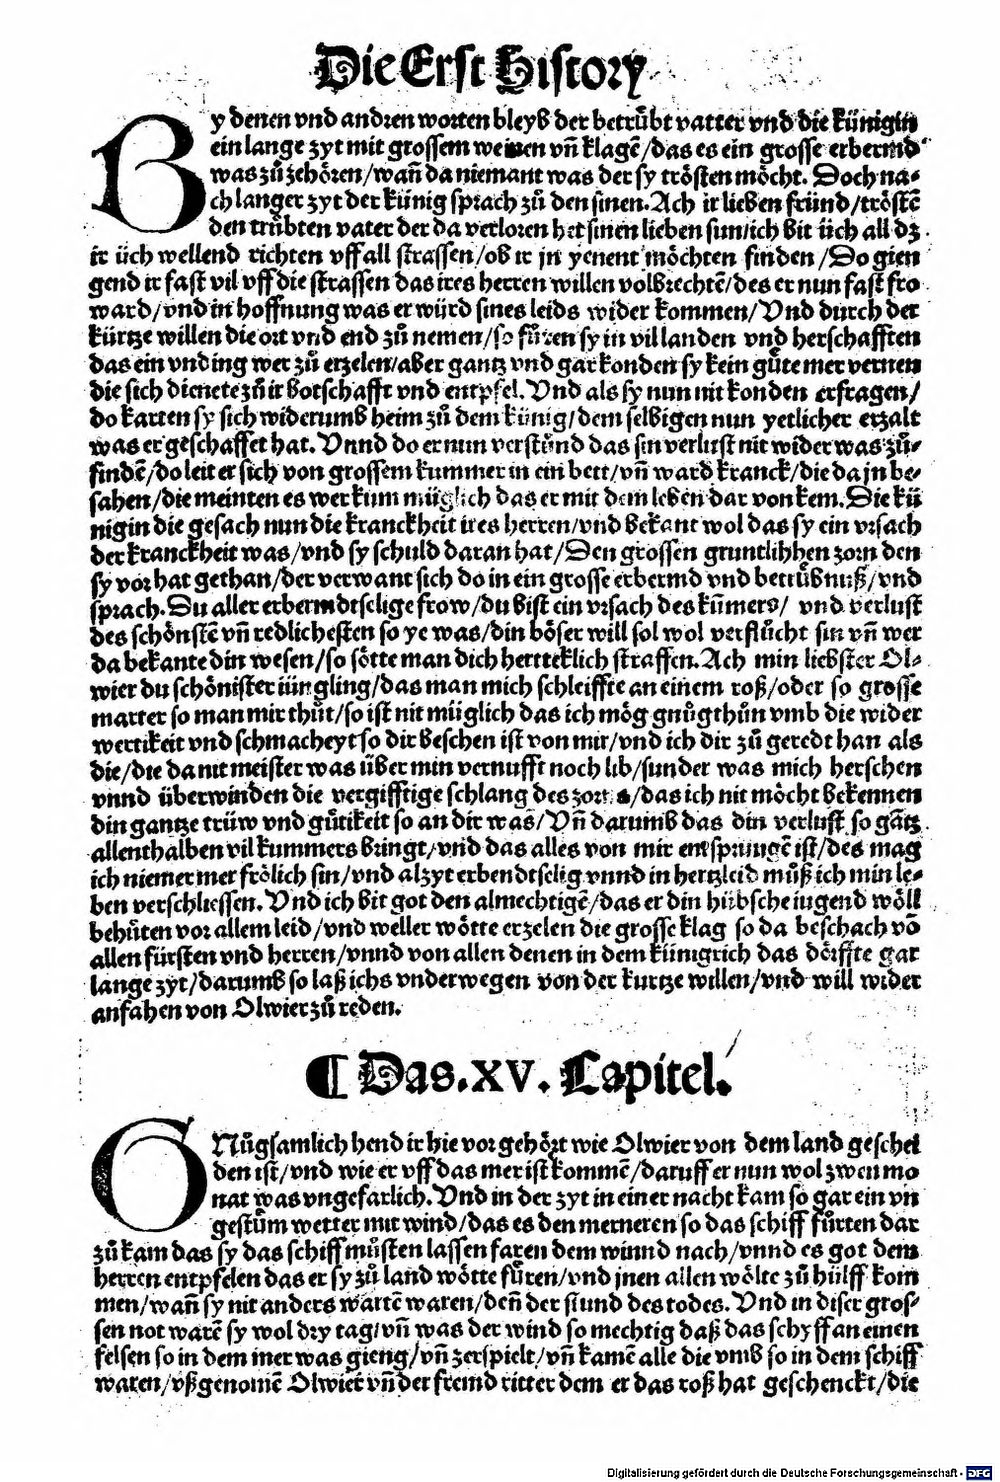 Die Erst History
By denen vnd andren worten bleyb der betrůbt vatter vnd die künigin
ein lange zyt mit grossem weinen vñ klagẽ/das es ein grosse erbermd
was zů zehören/wañ da niemant was der sy trösten möcht. Doch na-
ch langer zyt der künig sprach zů den sinen. Ach ir lieben fründ/tröstẽ
den trübten vater der da verloren het sinen lieben sun/ich bit üch all dz
ir üch wellend richten vff all strassen/ob ir jn yenent möchten finden/Do gien
gend ir fast vil vff die strassen das ires herren willen volbrechtẽ/des er nun fast fro
ward/vnd in hoffnung was er würd sines leids wider kommen/Vnd durch der
kürtze willen die ort vnd end zů nemen/so fůren sy in vil landen vnd herschafften
das ein vnding wer zů erzelen/aber gantz vnd gar konden sy kein gůte mer vernen
die sich dienete zů ir botschafft vnd entpfel. Vnd als sy nun nit konden erfragen/
do karten sy sich widerumb heim zů dem künig/dem selbigen nun yetlicher erzalt
was er geschaffet hat. Vnnd do er nun verstůnd das sin verlust nit wider was zů-
findẽ/do leit er sich von grossem kummer in ein bett/vñ ward kranck/die da jn be-
sahen/die meinten es wer kum müglich das er mit dem leben dar von kem. Die kü
nigin die gesach nun die kranckheit ires herren/vnd bekant wol das sy ein vrsach
der kranckheit was/vnd sy schuld daran hat/Den grossen gruntlihhen zorn den
sy vor hat gethan/der verwant sich do in ein grosse erbermd vnd betrübnuß/vnd
sprach. Du aller erbermdtselige frow/du bist ein vrsach des kümers/ vnd verlust
des schönstẽ vñ redlichesten so ye was/din böser will sol wol verflůcht sin vñ wer
da bekante din wesen/so sötte man dich herteklich straffen. Ach min liebster Ol-
wier du schönister iüngling/das man mich schleiffte an einem roß/oder so grosse
marter so man mir thůt/so ist nit müglich das ich mög gnůgthůn vmb die wider
wertikeit vnd schmacheyt so dir beschen ist von mir/vnd ich dir zů geredt han als
die/die da nit meister was über min vernufft noch lib/sunder was mich herschen
vnnd überwinden die vergifftige schlang des zorns/das ich nit möcht bekennen
din gantze trüw vnd gůtikeit so an dir was/Vñ darumb das din verlust so gãtz
allenthalben vil kummers bringt/vnd das alles von mir entsprungẽ ist/des mag
ich niemer mer frölich sin/vnd alzyt erbendtselig vnnd in hertzleid můß ich min le-
ben verschliessen. Vnd ich bit got den almechtigẽ/das er din hübsche iugend wöll
behůten vor allem leid/vnd weller wötte erzelen die grosse klag so da beschach võ
allen fürsten vnd herren/vnnd von allen denen in dem künigrich das dörffte gar
lange zyt/darumb so laß ichs vnderwegen von der kurtze willen/vnd will wider
anfahen von Olwier zů reden.
¶ Das.XV. Capitel.
GNůgsamlich hend ir hie vor gehört wie Olwier von dem land geschei
den ist/vnd wie er vff das mer ist kommẽ/daruff er nun wol zwen mo
nat was vngefarlich. Vnd in der zyt in einer nacht kam so gar ein vn
gestüm wetter mit wind/das es den merneren so das schiff fůrten dar
zů kam das sy das schiff můsten lassen faren dem winnd nach/vnnd es got dem
herren entpfelen das er sy zů land wötte fůren/vnd jnen allen wölte zů hülff kom
men/wañ sy nit anders wartẽ waren/deñ der stund des todes. Vnd in diser gros-
sen not warẽ sy wol dry tag/vñ was der wind so mechtig daß das schyff an einen
felsen so in dem mer was gieng/vñ zerspielt/vñ kamẽ alle die vmb so in dem schiff
waren/vßgenomẽ Olwier vñ der fremd ritter dem er das roß hat geschenckt/die
Digitalisierung gefördert durch die Deutsche Forschungsgemeinschaft - DFG